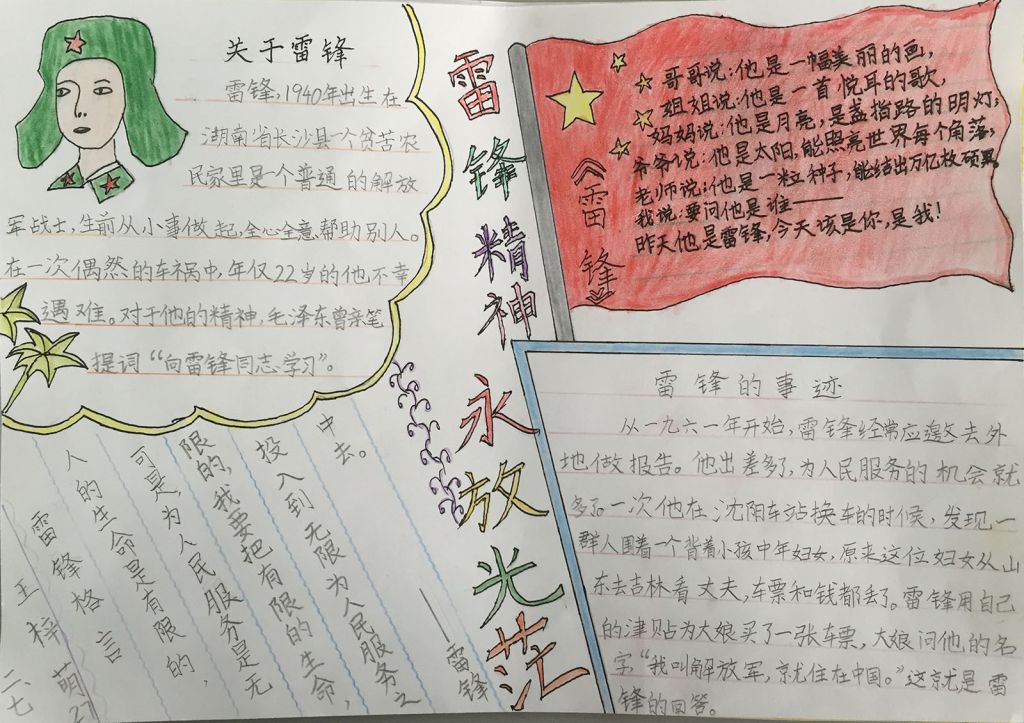 关于雷锋
雷锋,1940年出生在
湖南省长沙县一个贫苦农
民家里是一个普通的解放
军战士,生前从小事做起,全心全意帮助别人。
在一次偶然的车祸中,年仅22岁的他不幸
遇难。对于他的精神,毛泽东曾亲笔
提词“向雷锋同志学习”。
雷锋精神永放光茫
《雷锋》
哥哥说:他是一幅美丽的画,
姐姐说:他是一首悦耳的歌,
妈妈说:他是月亮,是盏指路的明灯,
爷爷说:他是太阳,能照亮世界每个角落,
老师说:他是一粒种子,能结出万亿枚硕果
我说:要问他是谁——
昨天他是雷锋,今天该是你,是我!
雷锋的事迹
从一九六一年开始,雷锋经常应邀去外
地做报告。他出差多了,为人民服务的机会就
多了。一次他在沈阳车站换车的时候,发现一
群人围着一个背着小孩中年妇女,原来这位妇女从山
东去吉林看丈夫,车票和钱都丢了。雷锋用自己
的津贴为大娘买了一张车票,大娘问他的名
字“我叫解放军,就住在中国。”这就是雷
锋的回答。
雷锋格言
人的生命是有限的,
可是,为人民服务是无
限的,我要把有限的生命,
投入到无限为人民服务之
中去。
——雷锋
二七
王梓萌27